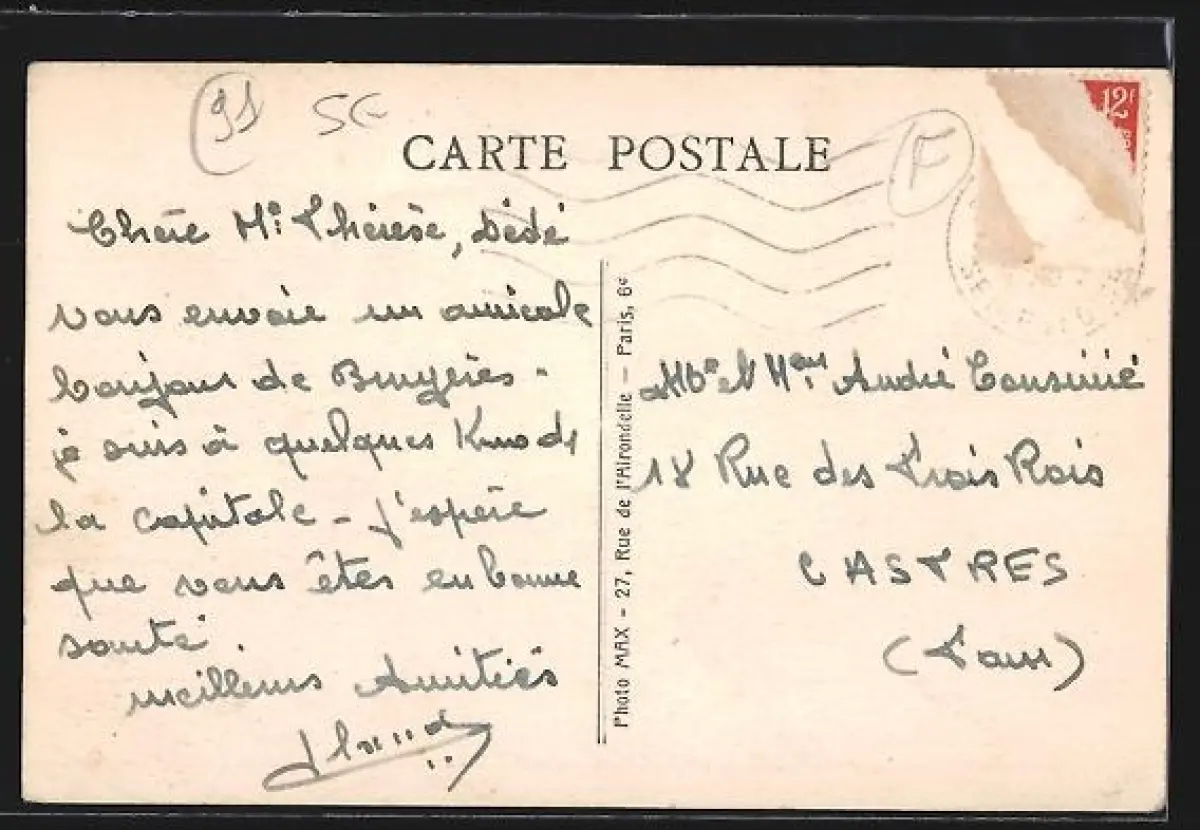 91 SE
CARTE POSTALE
F
12F
Chère Me Thérèse, Dédé
vous envoie un amicale
bonjour de Bruyères -
je suis à quelques Kms de
la capitale - j'espère
que vous êtes en bonne
santé.
meilleurs Amitiés
Photo MAX - 27, Rue de l'Hirondelle - Paris, 6e
et André
18 Rue des Trois Rois
CASTRES
(Tarn)